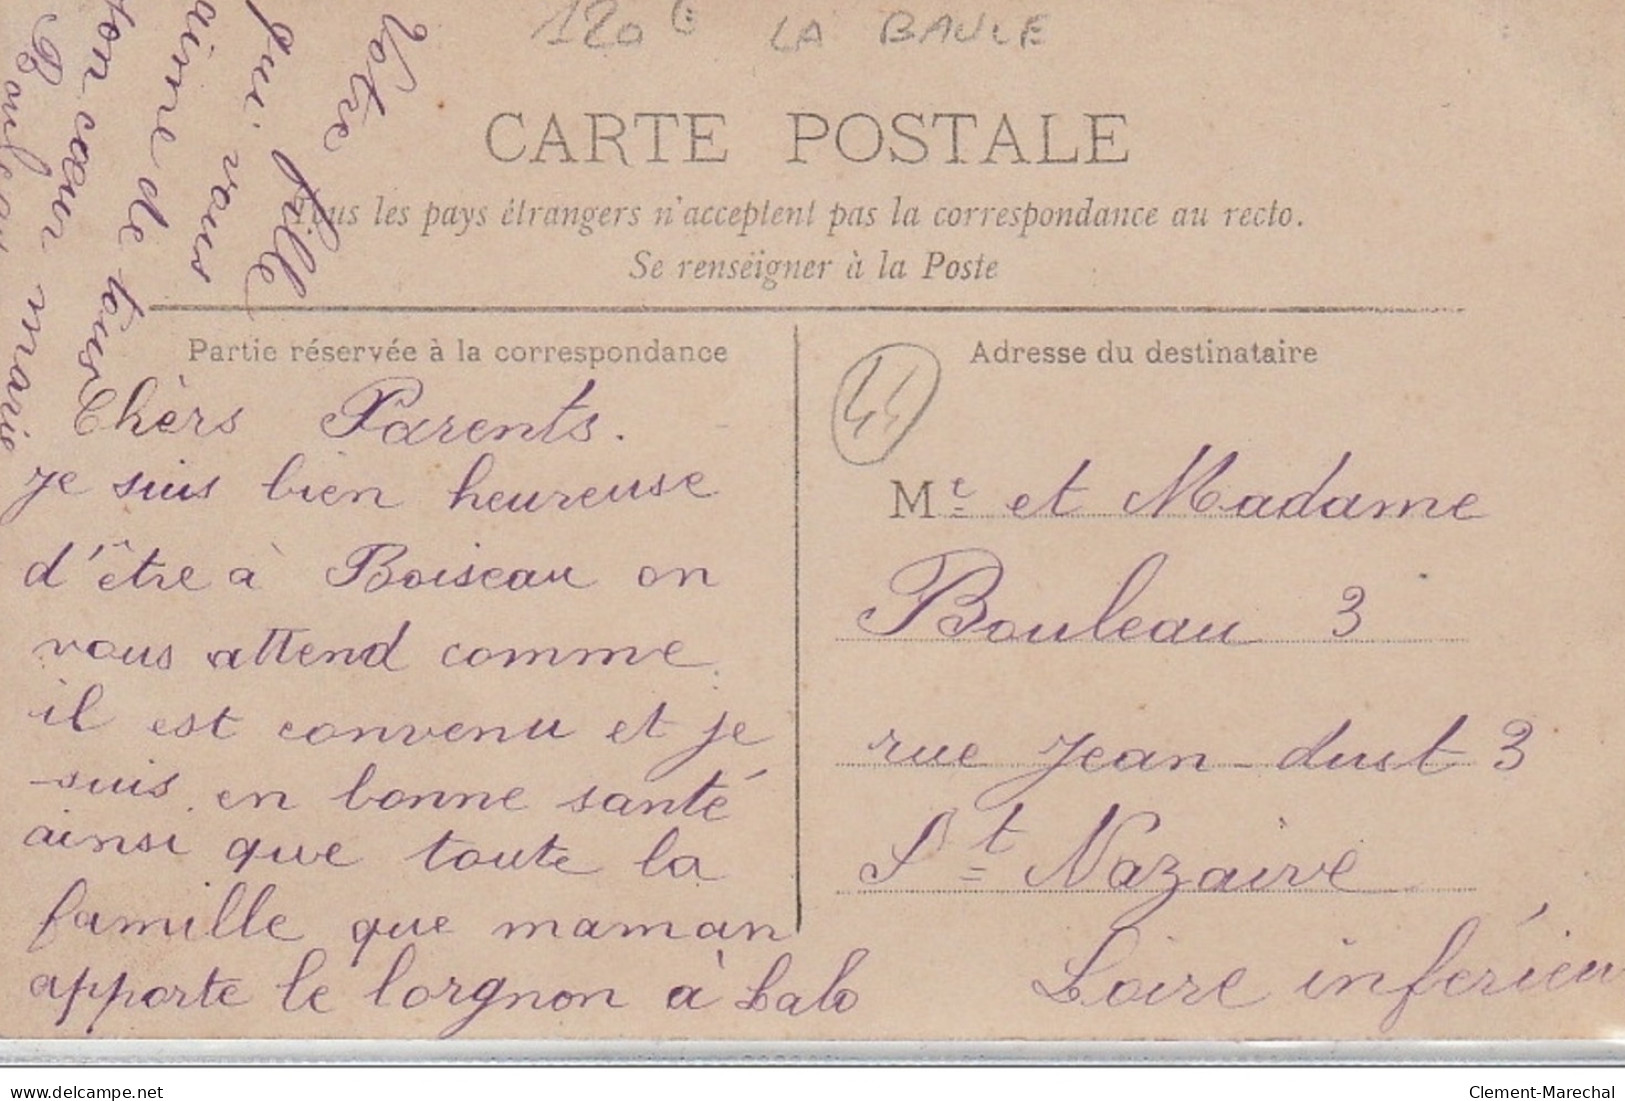 120 € LA BAULE
CARTE POSTALE
Tous les pays étrangers n'acceptent pas la correspondance au recto.
Se renseigner à la Poste
Partie réservée à la correspondance
Chèrs Parents.
Je suis bien heureuse
d'être à Boiseau on
vous attend comme
il est convenu et je
suis en bonne santé
ainsi que toute la
famille que maman
apporte le lorgnon à Lalo
Votre
fille
qui vous
aime de tous
son cœur
Bouleau marie
Adresse du destinataire
44
Mr et Madame
Bouleau 3
rue Jean-dust 3
St Nazaire
Loire inférieu
delcampe.net
Clement-Marechal